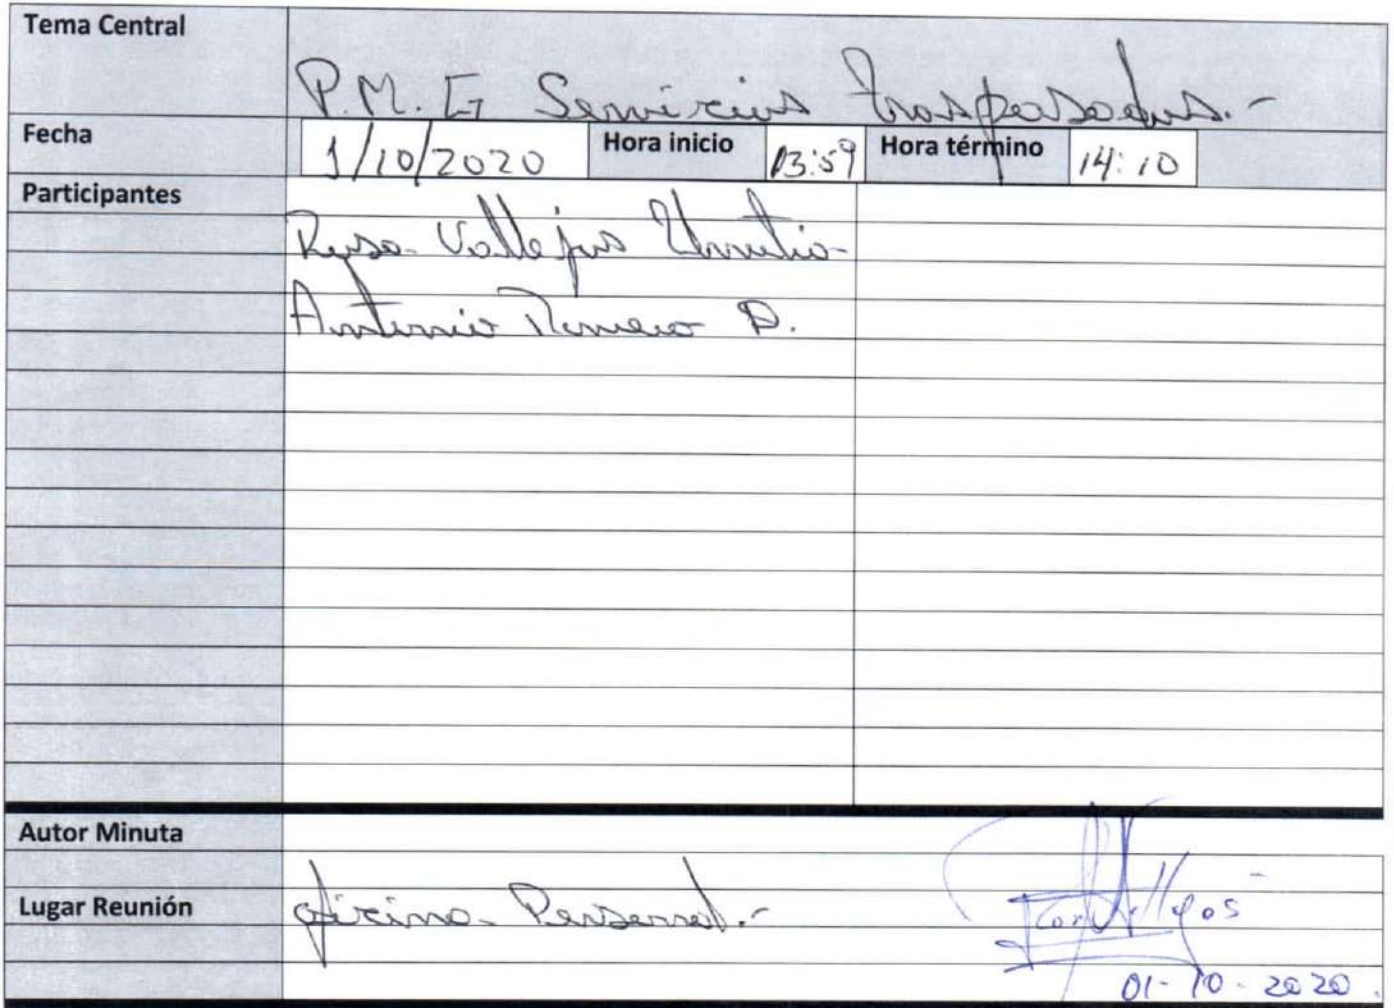 Tema Central
P.M.G Servicios traspasados.-
Fecha 1/10/2020 Hora inicio 13:59 Hora término 14:10
Participantes
Rosa Vallejos Urrutia
Antonio Romero P.
Autor Minuta
Lugar Reunión oficina Personal.-
01-10-2020.